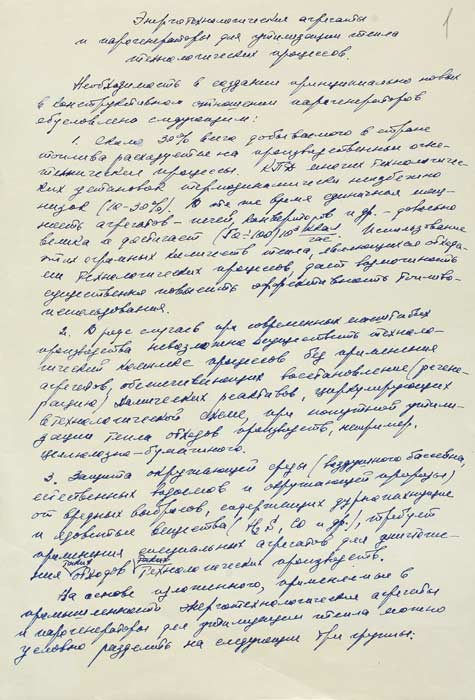 1
Энерготехнологические агрегаты
и парогенераторы для утилизации тепла
технологических процессов.
Необходимость в создании принципиально новых
в конструктивном отношении парогенераторов
обусловлена следующим:
1. Около 30% всего добываемого в стране
топлива расходуется на производственные огне-
технические процессы. КПД многих технологичес-
ких установок термодинамически неизбежно
низок (10-30%). В то же время единичная мощ-
ность агрегатов - печей, конверторов и др. - довольно
велика и достигает (50÷100)10⁶ ккал/час. Использование
этих огромных количеств тепла, являющихся отхода-
ми технологических процессов, даст возможность
существенно повысить эффективность топливо-
использования.
2. В ряде случаев при современных масштабах
производства невозможно осуществить техноло-
гический комплекс процессов без применения
агрегатов, обеспечивающих восстановление (регене-
рацию) химических реактивов, циркулирующих
в технологической схеме, при попутной утили-
зации тепла отходов производств, например,
целлюлозно-бумажного.
3. Защита окружающей среды (воздушного бассейна,
естественных водоемов и окружающей природы)
от вредных выбросов, содержащих дурнопахнущие
и ядовитые вещества (H₂S, CO и др.), требует
применения специальных агрегатов для уничтоже-
ния таких отходов таких технологических производств.
На основе изложенного, применяемые в
промышленности энерготехнологические агрегаты
и парогенераторы для утилизации тепла можно
условно разделить на следующие три группы: